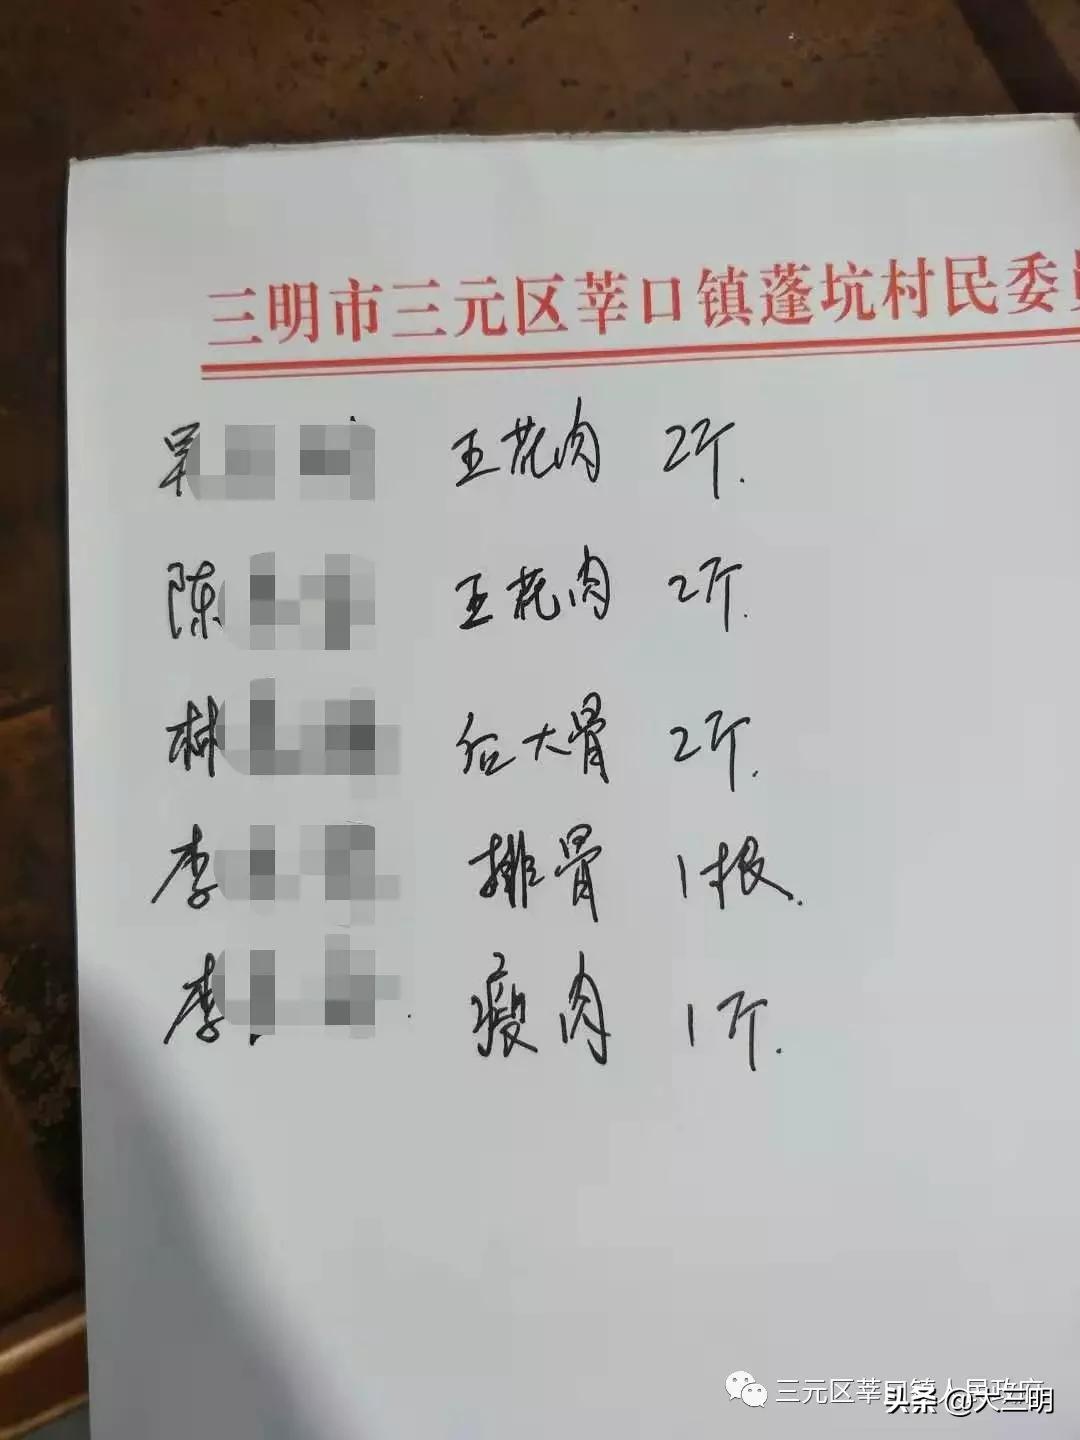 三明市三元区莘口镇蓬坑村民委员
五花肉 2斤.
陈 五花肉 2斤.
林 后大骨 2斤.
李 排骨 1根.
李 瘦肉 1斤.
三元区莘口镇人民政府
头条 @大三明